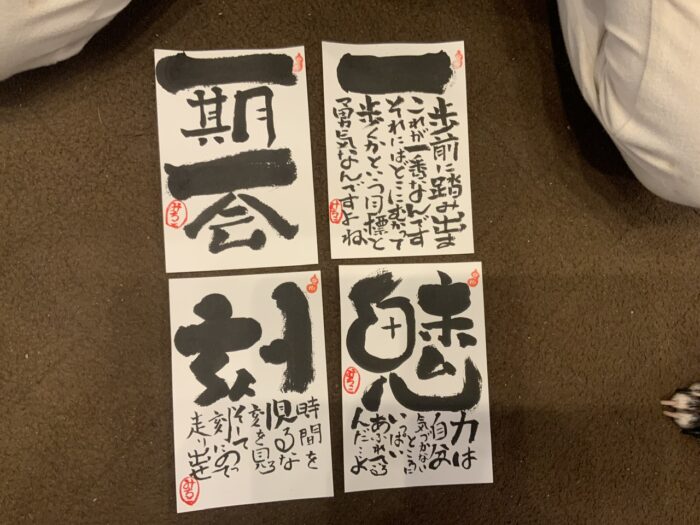 一期一会
みちこ
一
歩前に踏み出す
これが一番なんです
それにはどこにむかって
歩くかという目標と
勇気なんですよね
みちこ
刻
時間を
見るな
刻を見ろ
そして
刻にのって
走り出せ
みちこ
魅
力は
自分
気づかない
ところに
いっぱい
あふれてる
んだ…よ
みちこ